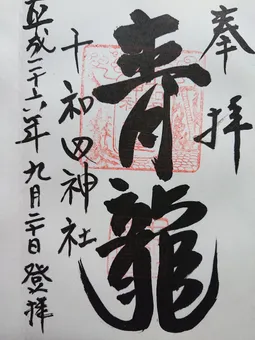 奉拝
青龍
十和田神社
平成二十六年九月二十日登拝